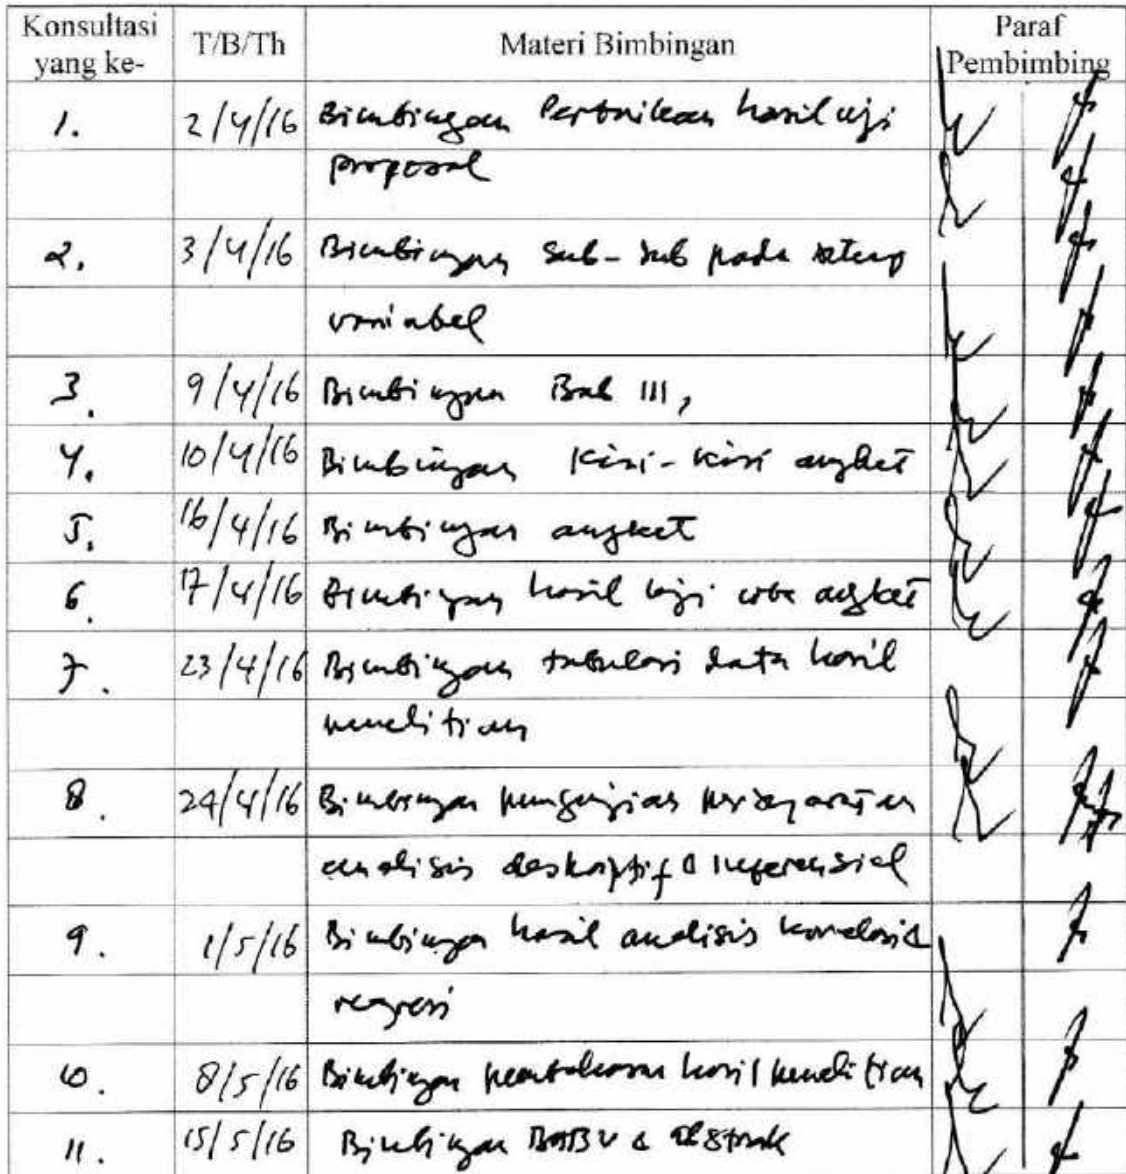 Konsultasi yang ke- T/B/Th Materi Bimbingan Paraf Pembimbing
1. 2/4/16 Bimbingan Perbaikan hasil uji
proposal
2. 3/4/16 Bimbingan Sub-Sub pada setiap
variabel
3. 9/4/16 Bimbingan Bab III,
4. 10/4/16 Bimbingan Kisi-kisi angket
5. 16/4/16 Bimbingan angket
6. 17/4/16 Bimbingan hasil uji coba angket
7. 23/4/16 Bimbingan tabulasi data hasil
penelitian
8. 24/4/16 Bimbingan pengujian persyaratan
analisis deskriptif & inferensial
9. 1/5/16 Bimbingan hasil analisis korelasi &
regresi
10. 8/5/16 Bimbingan pembahasan hasil penelitian
11. 15/5/16 Bimbingan BAB V & Abstrak